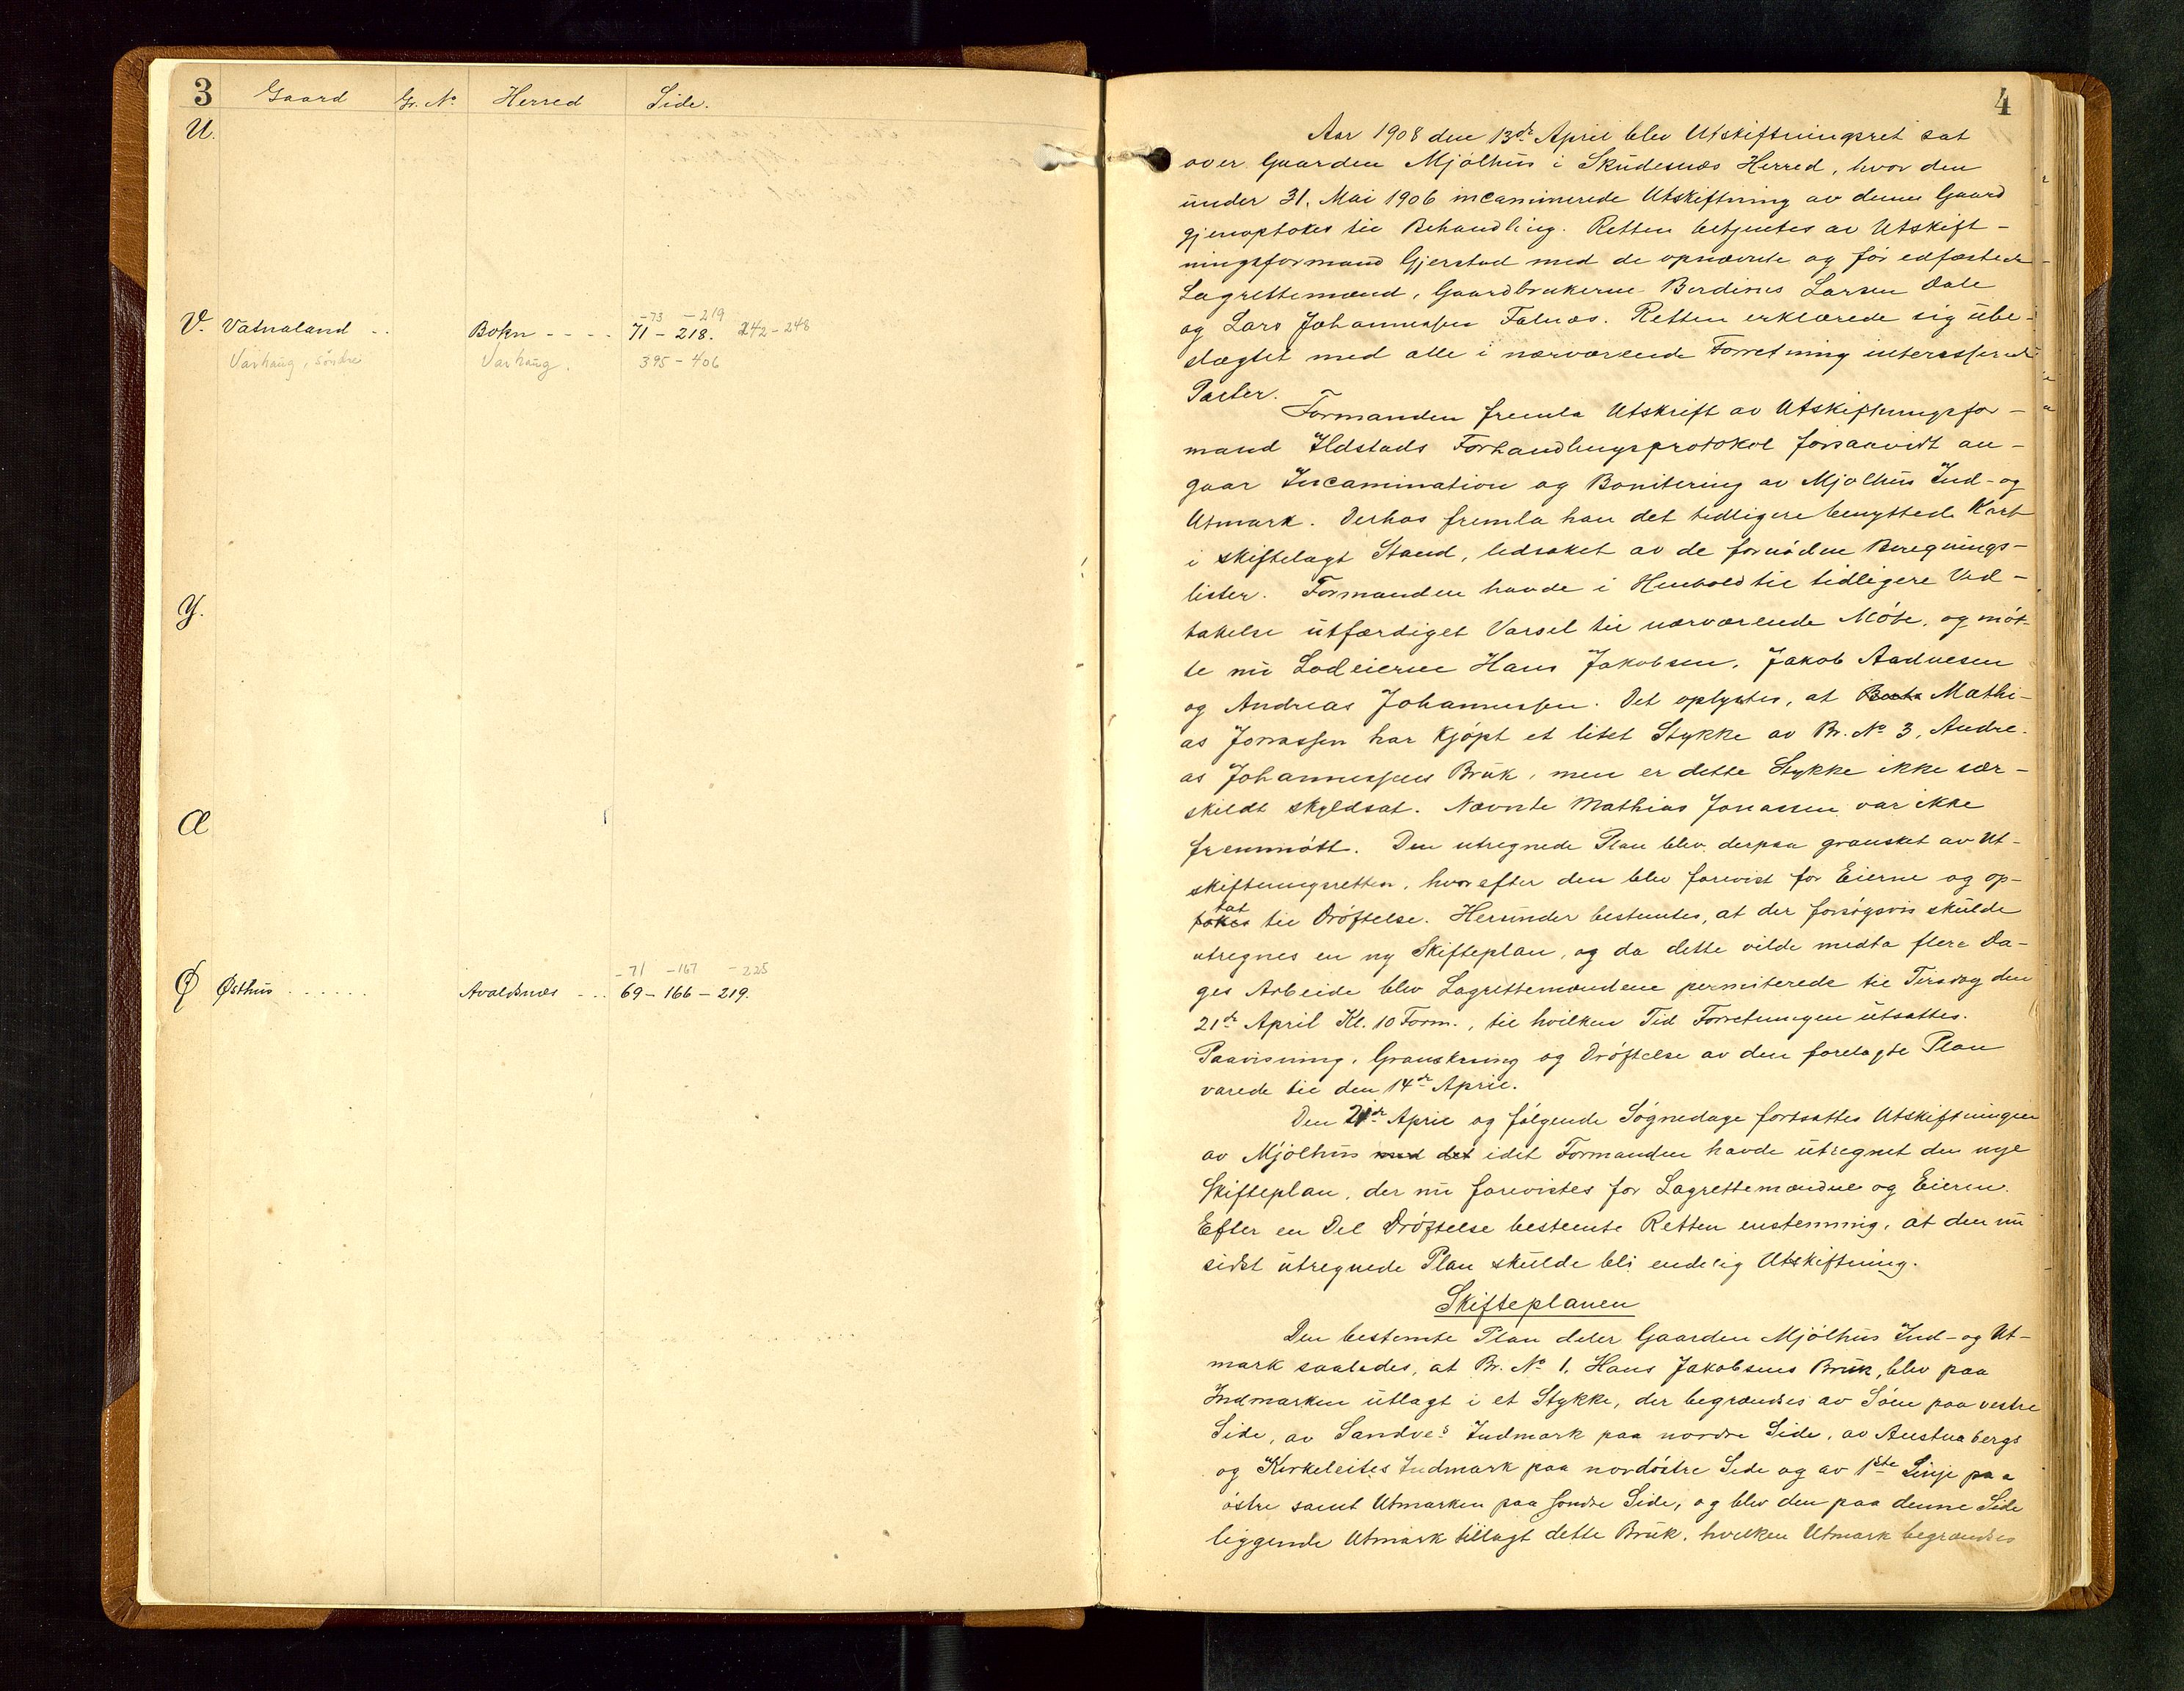 3 Gaard Gr. No. Herred Side.
U.
-73 -219
V. Vatnaland .. Bokn - - - - 71 - 218. 242 - 248
Varhaug, söndre Varhaug. 395 - 406
Y.
Æ
-71 -167 -225
Ø Østhus . . . . . . Avaldsnæs - .. 69 - 166 - 219.
4
Aar 1908 den 13de April blev Utskiftningsret sat
over Gaarden Mjølhus i Skudesnæs Herred, hvor den
under 31. Mai 1906 incaminerede Utskiftning av denne Gaard
gjenoptokes til Behandling. Retten betjentes av Utskift-
ningsformand Gjerstad med de opnævnte og før edfæstede
Lagrettemænd, Gaardbrukerne Berdines Larsen Dale
og Lars Johannessen Falnæs. Retten erklærede sig ube-
slægtet med alle i nærværende Forretning interesserede
Parter.
Formanden fremla Utskrift av Utskiftningsfor-
mand Ildstads Forhandlingsprotokol forsaavidt an-
gaar Incamination og Bonitering av Mjølhus Ind- og
Utmark. Derhos fremla han det tidligere benyttede Kart
i skiftelagt Stand, ledsaket av de fornødne Beregnings-
lister. Formanden havde i Henhold til tidligere Ved-
takelse utfærdiget Varsel til nærværende Møte, og møt-
te nu Lodeierne Hans Jakobsen, Jakob Aadnesen
og Andreas Johannessen. Det oplystes, at Mathi-
as Jonassen har kjøpt et litet Stykke av Br. No 3, Andre-
as Johannessens Bruk, men er dette Stykke ikke sær-
skildt skyldsat. Nævnte Mathias Jonassen var ikke
fremmøtt. Den utregnede Plan blev derpaa gransket av Ut-
skiftningsretten, hvorefter den blev forevist for Eierne og op-
tat
tokes til Drøftelse. Herunder bestemtes, at der forsøgsvis skulde
utregnes en ny Skifteplan, og da dette vilde medta flere Da-
ges Arbeide blev Lagrettemændene permiterede til Tirsdag den
21de April Kl. 10 Form., til hvilken Tid Forretningen utsattes.
Paavisning, Granskning og Drøftelse av den forelagte Plan
varede til den 14de April.
Den 21de April og følgende Søgnedage fortsattes Utskiftningen
av Mjølhus med det idet Formanden havde utregnet den nye
Skifteplan, der nu forevistes for Lagrettemændene og Eierne.
Efter en Del Drøftelse bestemte Retten enstemmig, at den nu
sidst utregnede Plan skulde bli endelig Utskiftning.
Skifteplanen
Den bestemte Plan deler Gaarden Mjølhus Ind- og Ut-
mark saaledes, at Br. No 1, Hans Jakobsens Bruk, blev paa
Indmarken utlagt i et Stykke, der begrændses av Søen paa vestre
Side, av Sandves Indmark paa nordre Side, av Austnabergs
og Kirkeleites Indmark paa nordøstre Side og av 1ste Linje paa
østre samt Utmarken paa søndre Side, og blev den paa denne Side
liggende Utmark tillagt dette Bruk, hvilken Utmark begrændses